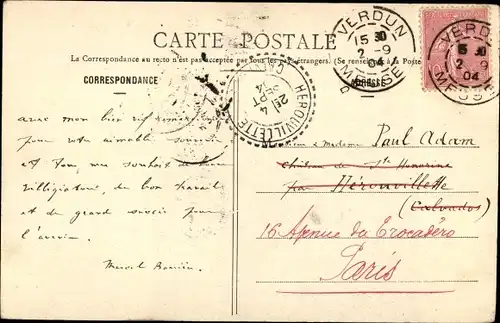 CARTE POSTALE
La Correspondance au recto n'est pas acceptée par tous les pays étrangers. (Se renseigner à la Poste
CORRESPONDANCE
ADRESSE
VERDUN
15 30
2 - 9
04
MEUSE
VERDUN
15 30
2 - 9
04
MEUSE
HEROUVILLETTE
4
SEPT
avec mon bien vif
pour votre aimable souvenir
et tous mes souhaits de bonne
villégiature, de bon travail
et de grand succès pour
l'avenir.
Marcel
Madame Paul Adam
Château de Ste Honorine
par Hérouvillette
(Calvados)
16 Avenue du Trocadéro
Paris